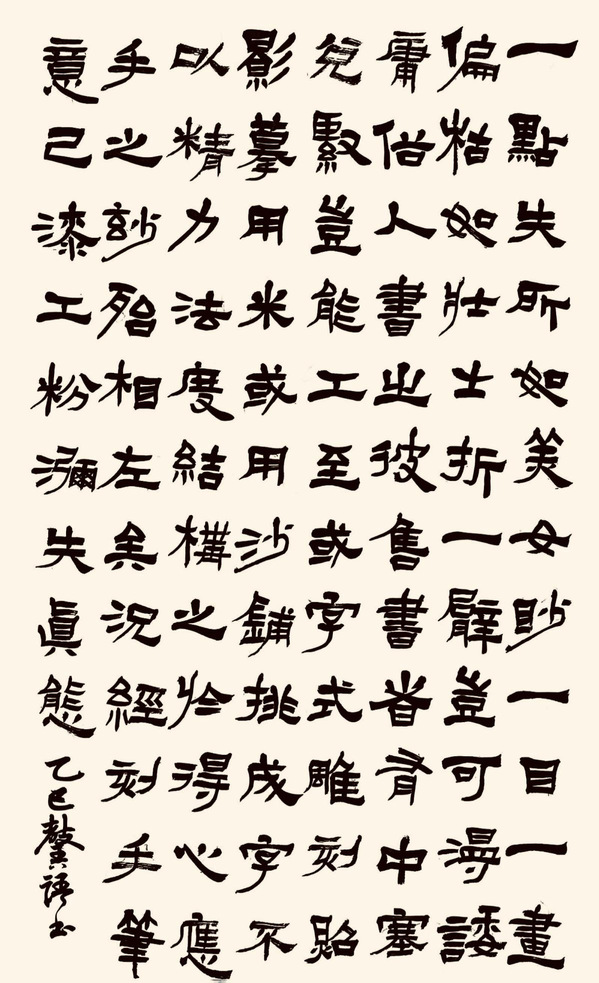 一點失所如美女眇一目一畫
偏枯如壯士折一臂豈可謾諉
庸俗人書之彼售書者中塞
兌豈能工至或字式雕刻貽
影摹用米或用沙鋪挑成字不
以精力法度結構之於得心應
手之玅殆相左矣況經刻手筆
意已漆工粉瀰失眞態
乙巳語书